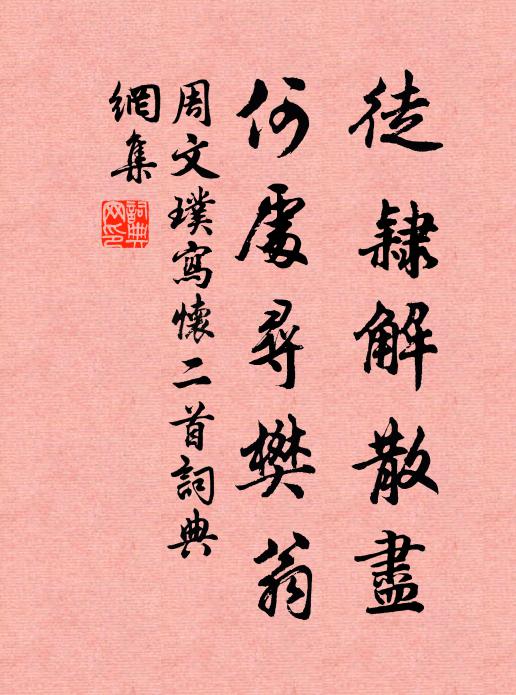 徒隸解散盡
何處尋樊翁
周文璞寫懷二首詞典
網集
詞典
网印